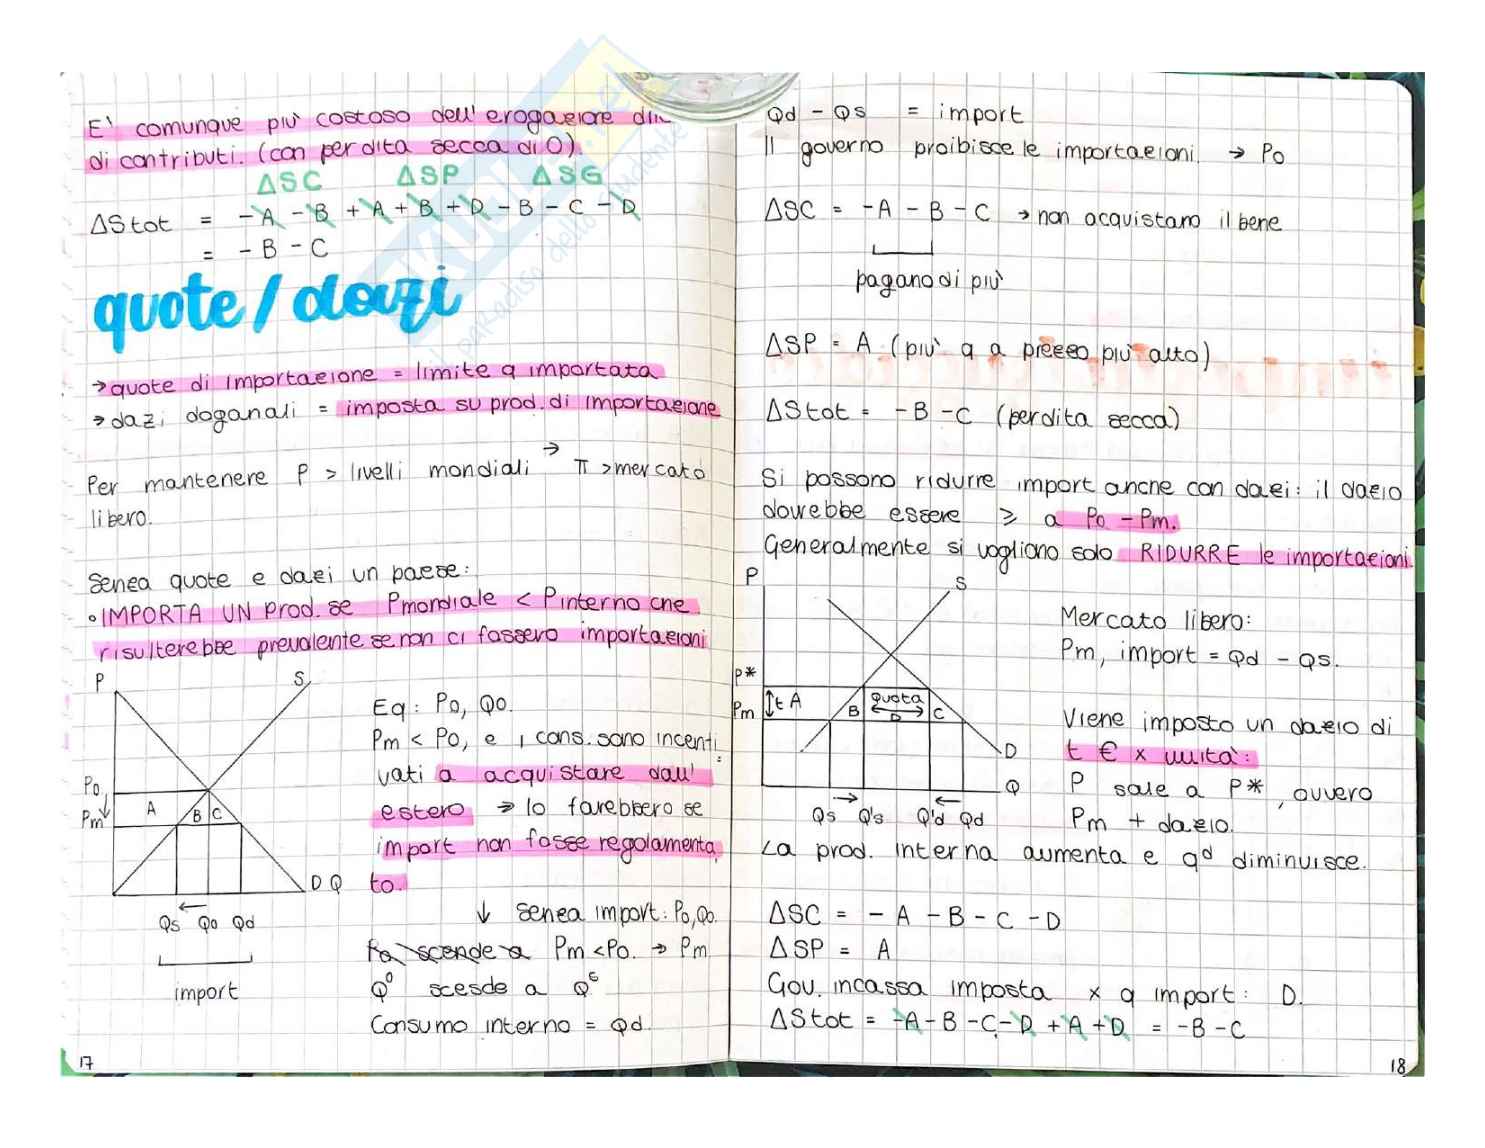 E' comunque più costoso dell'erogazione
di contributi. (con perdita secca di 0)
ΔSC ΔSP ΔSG
ΔStot = -A -B +A +B +D -B -C -D
= -B -C
quote/dazi
→ quote di importazione = limite q importata
→ dazi doganali = imposta su prod. di importazione
Per mantenere P > livelli mondiali → π > mercato
libero.
Senza quote e dazi un paese:
• IMPORTA UN prod. se Pmondiale < Pinterno che
risulterebbe prevalente se non ci fossero importazioni
P S
Po
Pm
A B C
D Q
Qs Qo Qd
import
Eq: Po, Qo.
Pm < Po, e i cons. sono incenti
vati a acquistare dall'
estero → lo farebbero se
import non fosse regolamenta
to.
↓ senza import: Po, Qo.
Po scende a Pm < Po. → Pm
Q⁰ scesde a Qˢ
Consumo interno = Qd.
17
Qd - Qs = import
Il governo proibisce le importazioni. → Po
ΔSC = -A -B -C → non acquistano il bene
pagano di più
ΔSP = A (più q a prezzo più alto)
ΔStot = -B -C (perdita secca)
Si possono ridurre import anche con dazi: il dazio
dovrebbe essere ⩾ a Po - Pm.
Generalmente si vogliono solo RIDURRE le importazioni.
P S
P*
Pm
t A
quota
B D C
D
Q
Qs Q's Q'd Qd
Mercato libero:
Pm, import = Qd - Qs.
Viene imposto un dazio di
t € x unità:
P sale a P*, ovvero
Pm + dazio.
La prod. interna aumenta e qᵈ diminuisce.
ΔSC = -A -B -C -D
ΔSP = A
Gov. incassa imposta x q import: D.
ΔStot = -A -B -C -D +A +D = -B -C
18
il paradiso dello studente